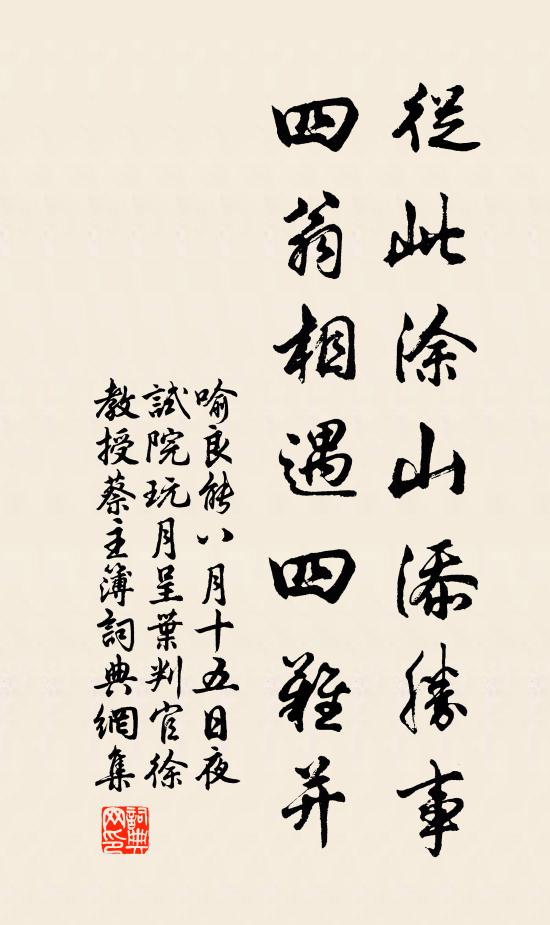 從此涂山添勝事
四翁相遇四難并
喻良能八月十五日夜
試院玩月呈葉判官徐
教授蔡主簿詞典網集
詞典
网印